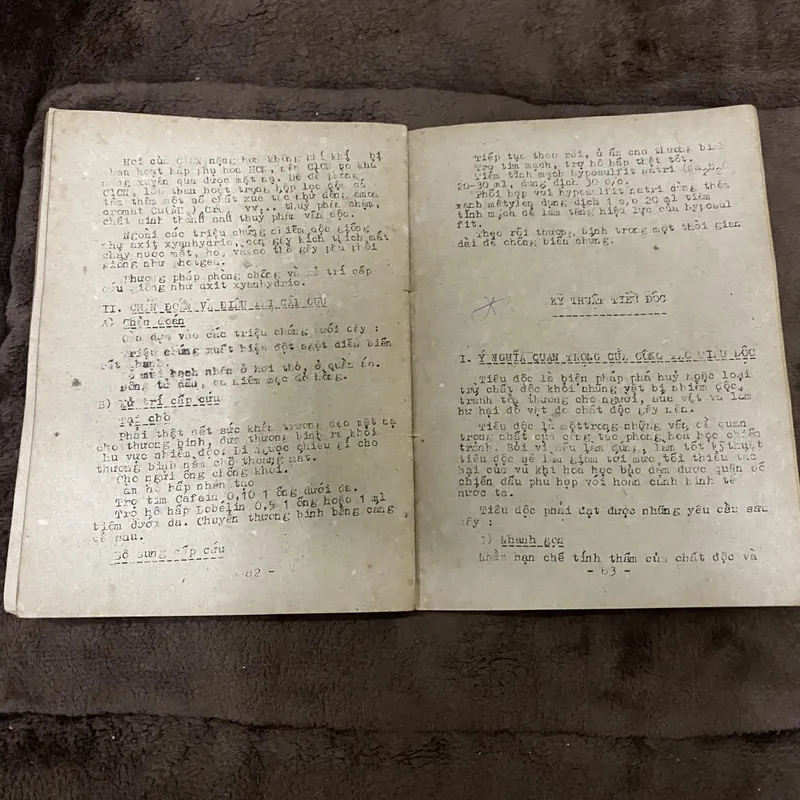 Hơi của ClCN nặng hơn không khí
than hoạt hấp phụ hơn HCN, nên ClCN có khả
năng xuyên qua được mặt nạ. Để đề phòng
ClCN, lớp than hoạt trong hộp lọc độc có
tẩm thêm một số chất xúc tác như đồng amôn
cromat
chất sinh thành sau thuỷ phân vẫn độc.
Ngoài các triệu chứng nhiễm độc giống
như axit xyanhydric, còn gây kích thích mắt
chảy nước mắt, ho, và có thể gây phù phổi
giống như photgen.
Phương pháp phòng chống và xử trí cấp
cứu giống như axit xyanhydric.
II. CHẨN ĐOÁN VÀ ĐIỀU TRỊ CẤP CỨU
A) Chẩn đoán
Cần dựa vào các triệu chứng dưới đây :
Triệu chứng xuất hiện đột ngột diễn biến
rất nhanh.
Có mùi hạnh nhân ở hơi thở, ở quần áo.
Đồng tử dãn, da niêm mạc đỏ hồng.
B) Xử trí cấp cứu
Tại chỗ
Phải thật hết sức khẩn trương đeo mặt nạ
cho thương binh, đưa thương binh ra khỏi
khu vực nhiễm độc. Đi ngược chiều gió cho
thương binh nằm chỗ thoáng mát.
Cho ngửi ống chống khói.
hô hấp nhân tạo
Trợ tim Cafein 0,10 1 ống dưới da.
Trợ hô hấp Lobelin 0,5 1 ống hoặc 1 ml
tiêm dưới da. Chuyển thương binh bằng cáng
về sau.
Bổ sung cấp cứu
- 82 -
Tiếp tục theo rõi, ủ ấm cho thương binh
Trợ tim mạch, trợ hô hấp thật tốt.
Tiêm tĩnh mạch hyposulfit natri
20-30 ml, dung dịch 30 o/o.
Phối hợp với hyposulfit natri dùng thêm
xanh mêtylen dung dịch 1 o/o 20 ml tiêm
tĩnh mạch để làm tăng hiệu lực của hyposul
fit.
Theo rõi thương binh trong một thời gian
dài để chống biến chứng.
KỸ THUẬT TIÊU ĐỘC
I. Ý NGHĨA QUAN TRỌNG CỦA CÔNG TÁC TIÊU ĐỘC
Tiêu độc là biện pháp phá huỷ hoặc loại
trừ chất độc khỏi những vật bị nhiễm độc,
tránh tổn thương cho người, súc vật và làm
hư hại đồ vật do chất độc gây nên.
Tiêu độc là mộttrong những vấn đề quan
trọng nhất của công tác phòng hoá học chiến
tranh. Bởi vì nếu làm đúng, làm tốt kỹthuật
tiêu độc sẽ làm giảm tới mức tối thiểu tác
hại của vũ khí hoá học bảo đảm được quân số
chiến đấu phù hợp với hoàn cảnh kinh tế
nước ta.
Tiêu độc phải đạt được những yêu cầu sau
đây :
1) Nhanh gọn
Nhằm hạn chế tính thấm của chất độc và
- 83 -